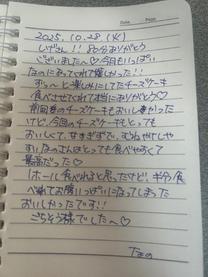 Date
2025.10.28.(火)
しげさん!! 80分ありがとう
ございました♡今日もいっぱい
なってくれて嬉しかった!!
ずっーと楽しみにしてたチーズケーキ
食べさせてくれて本当にありがとう♡
前回のチーズケーキもおいしかった
けど、今回のチーズケーキもとっても
おいしくて、甘すぎずで、
とっても食べやすくて
最高だった♡
1ホール食べれると思ったけど、ギブ
べれてお腹いっぱいになってしまった
おいしかったです!!
ごちそう様でした〜♡